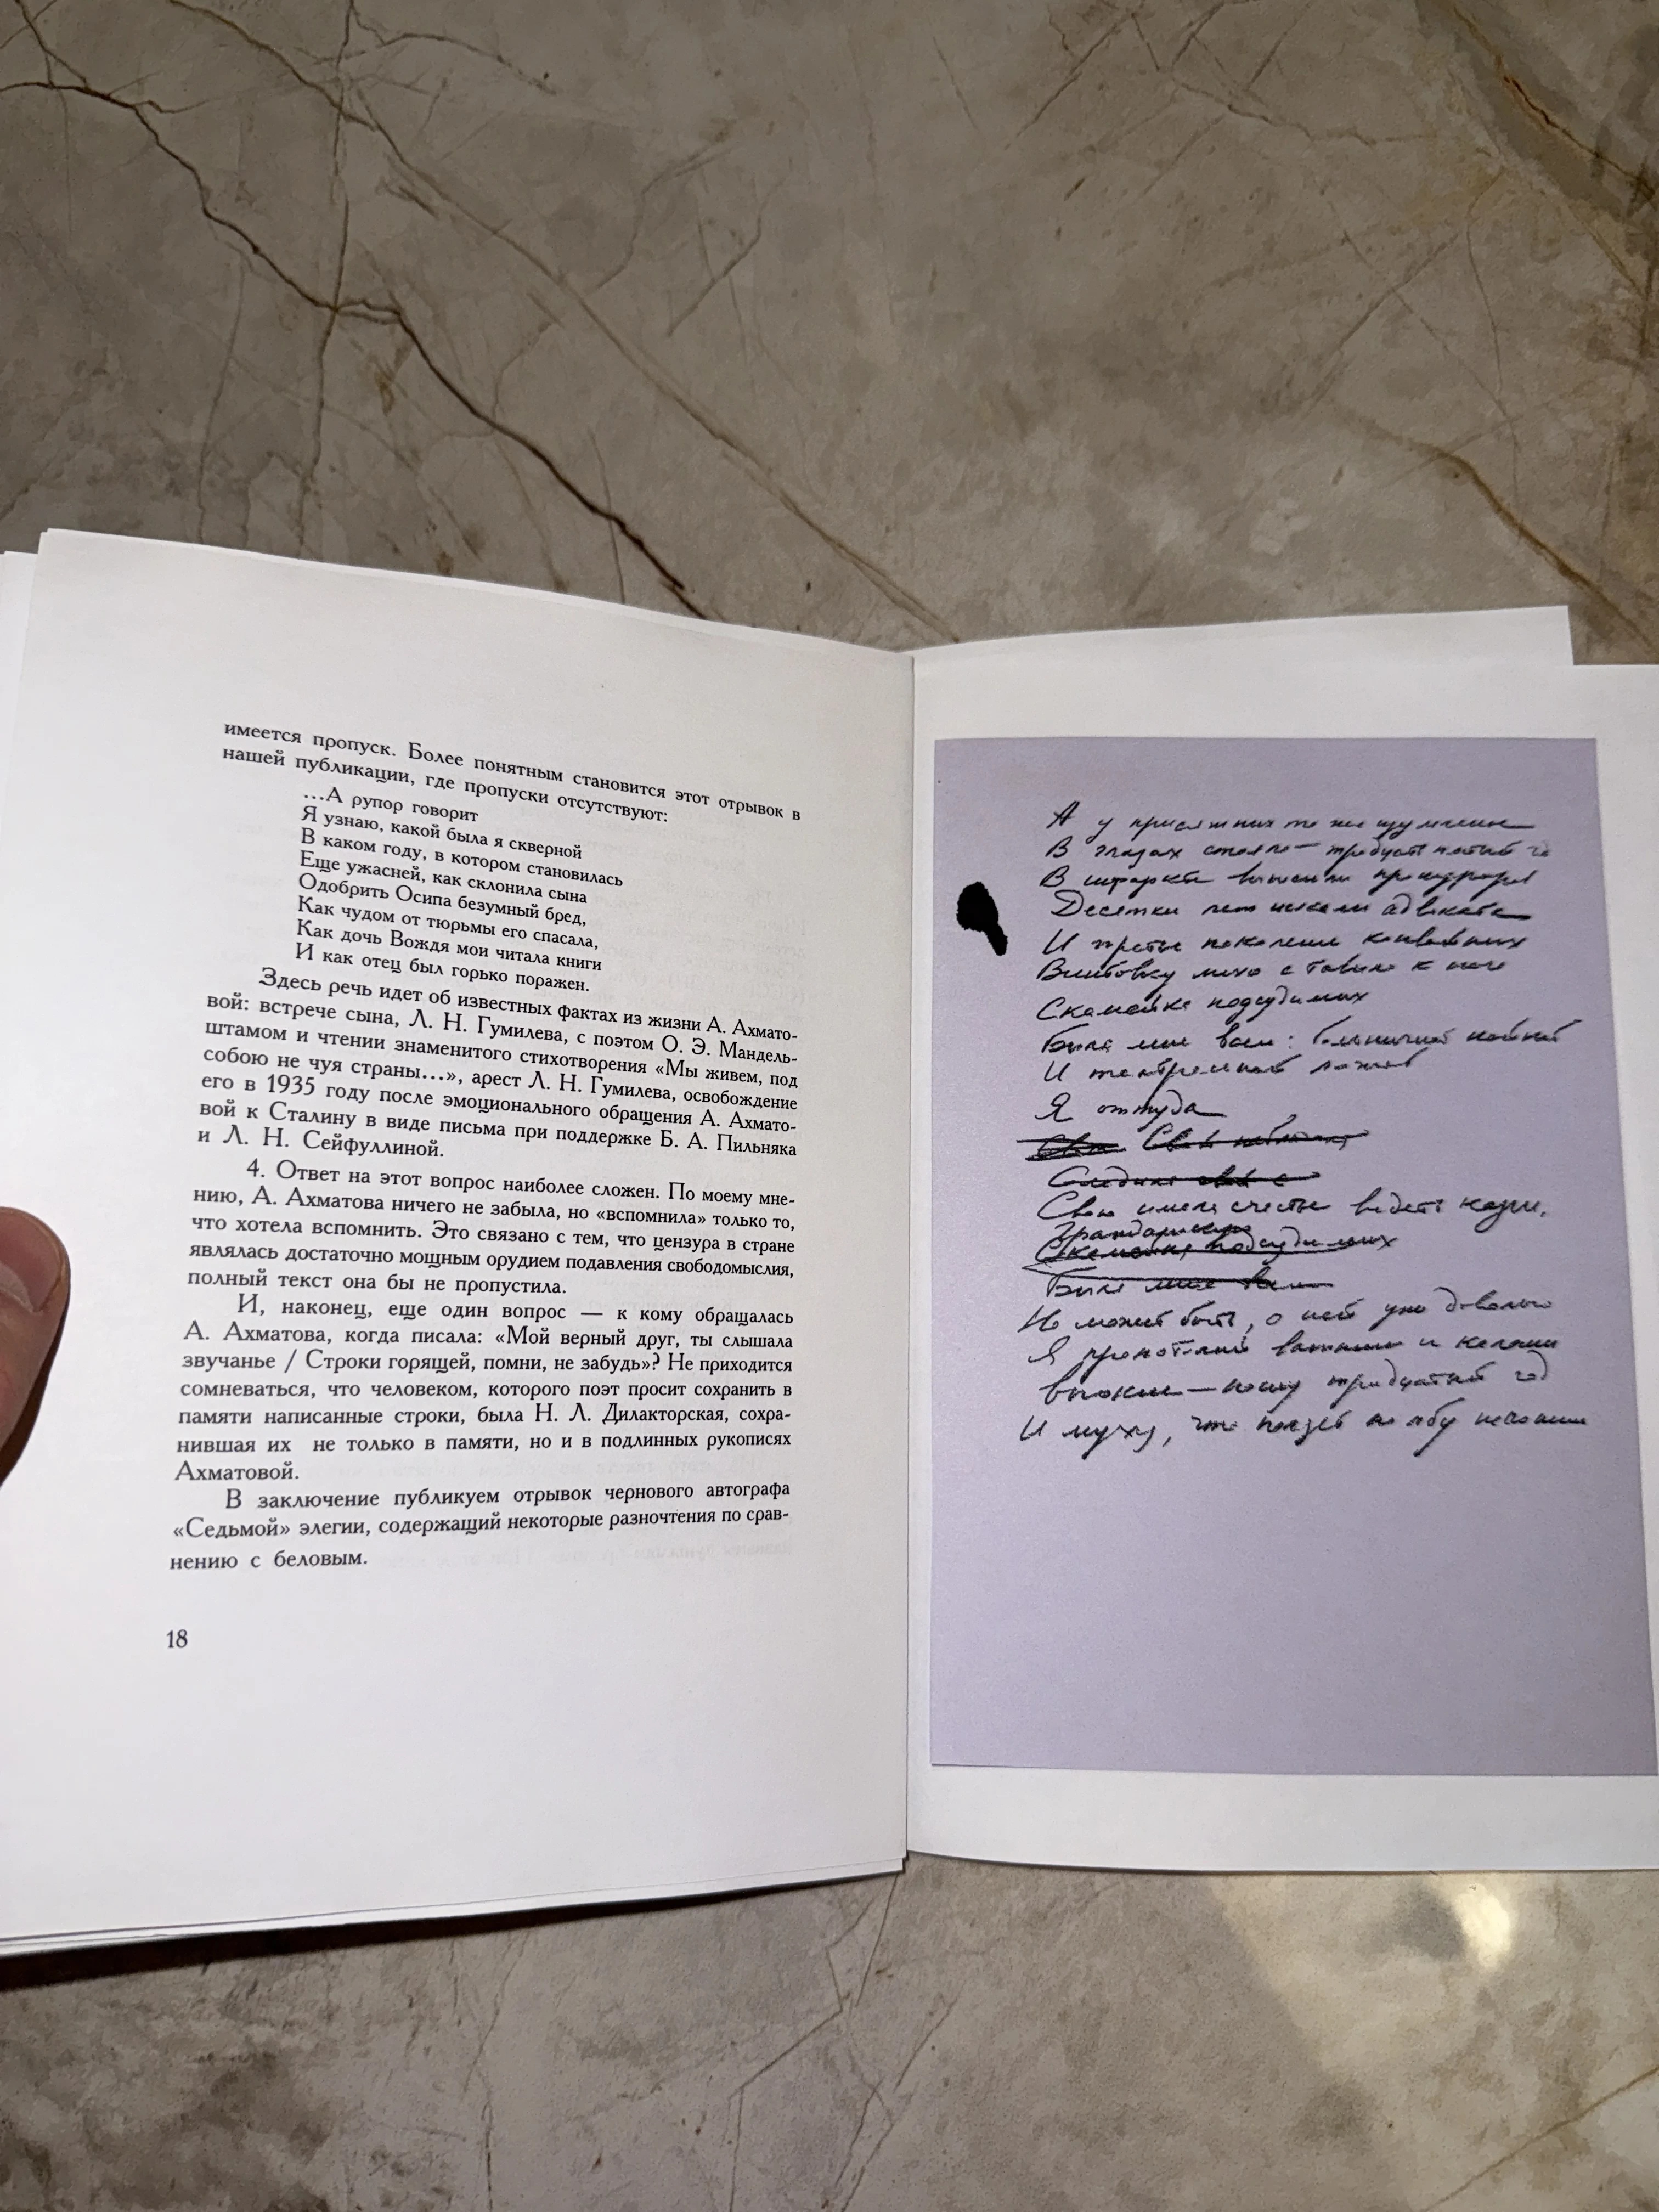 имеется пропуск. Более понятным становится этот отрывок в
нашей публикации, где пропуски отсутствуют:
...А рупор говорит
Я узнаю, какой была я скверной
В каком году, в котором становилась
Еще ужасней, как склонила сына
Одобрить Осипа безумный бред,
Как чудом от тюрьмы его спасала,
Как дочь Вождя мои читала книги
И как отец был горько поражен.
Здесь речь идет об известных фактах из жизни А. Ахмато-
вой: встрече сына, Л. Н. Гумилева, с поэтом О. Э. Мандель-
штамом и чтении знаменитого стихотворения «Мы живем, под
собою не чуя страны...», арест Л. Н. Гумилева, освобождение
его в 1935 году после эмоционального обращения А. Ахмато-
вой к Сталину в виде письма при поддержке Б. А. Пильняка
и Л. Н. Сейфуллиной.
4. Ответ на этот вопрос наиболее сложен. По моему мне-
нию, А. Ахматова ничего не забыла, но «вспомнила» только то,
что хотела вспомнить. Это связано с тем, что цензура в стране
являлась достаточно мощным орудием подавления свободомыслия,
полный текст она бы не пропустила.
И, наконец, еще один вопрос — к кому обращалась
А. Ахматова, когда писала: «Мой верный друг, ты слышала
звучанье / Строки горящей, помни, не забудь»? Не приходится
сомневаться, что человеком, которого поэт просит сохранить в
памяти написанные строки, была Н. Л. Дилакторская, сохра-
нившая их не только в памяти, но и в подлинных рукописях
Ахматовой.
В заключение публикуем отрывок чернового автографа
«Седьмой» элегии, содержащий некоторые разночтения по срав-
нению с беловым.
18
А у присяжных то же изумление
В глазах стояло — тридцать пятый
В инфаркте выносили прокурора
Десятки лет искали адвоката
И третье поколение конвойных
Винтовку лихо ставило к ноге
Скамейка подсудимых
Была мне всем: больничной койкой
И театральной ложей
Я оттуда
Свою имела счастье видеть казнь.
Скамейка подсудимых
Была мне всем
Но может быть, о ней уже довольно
Я
И муху, что ползет по лбу